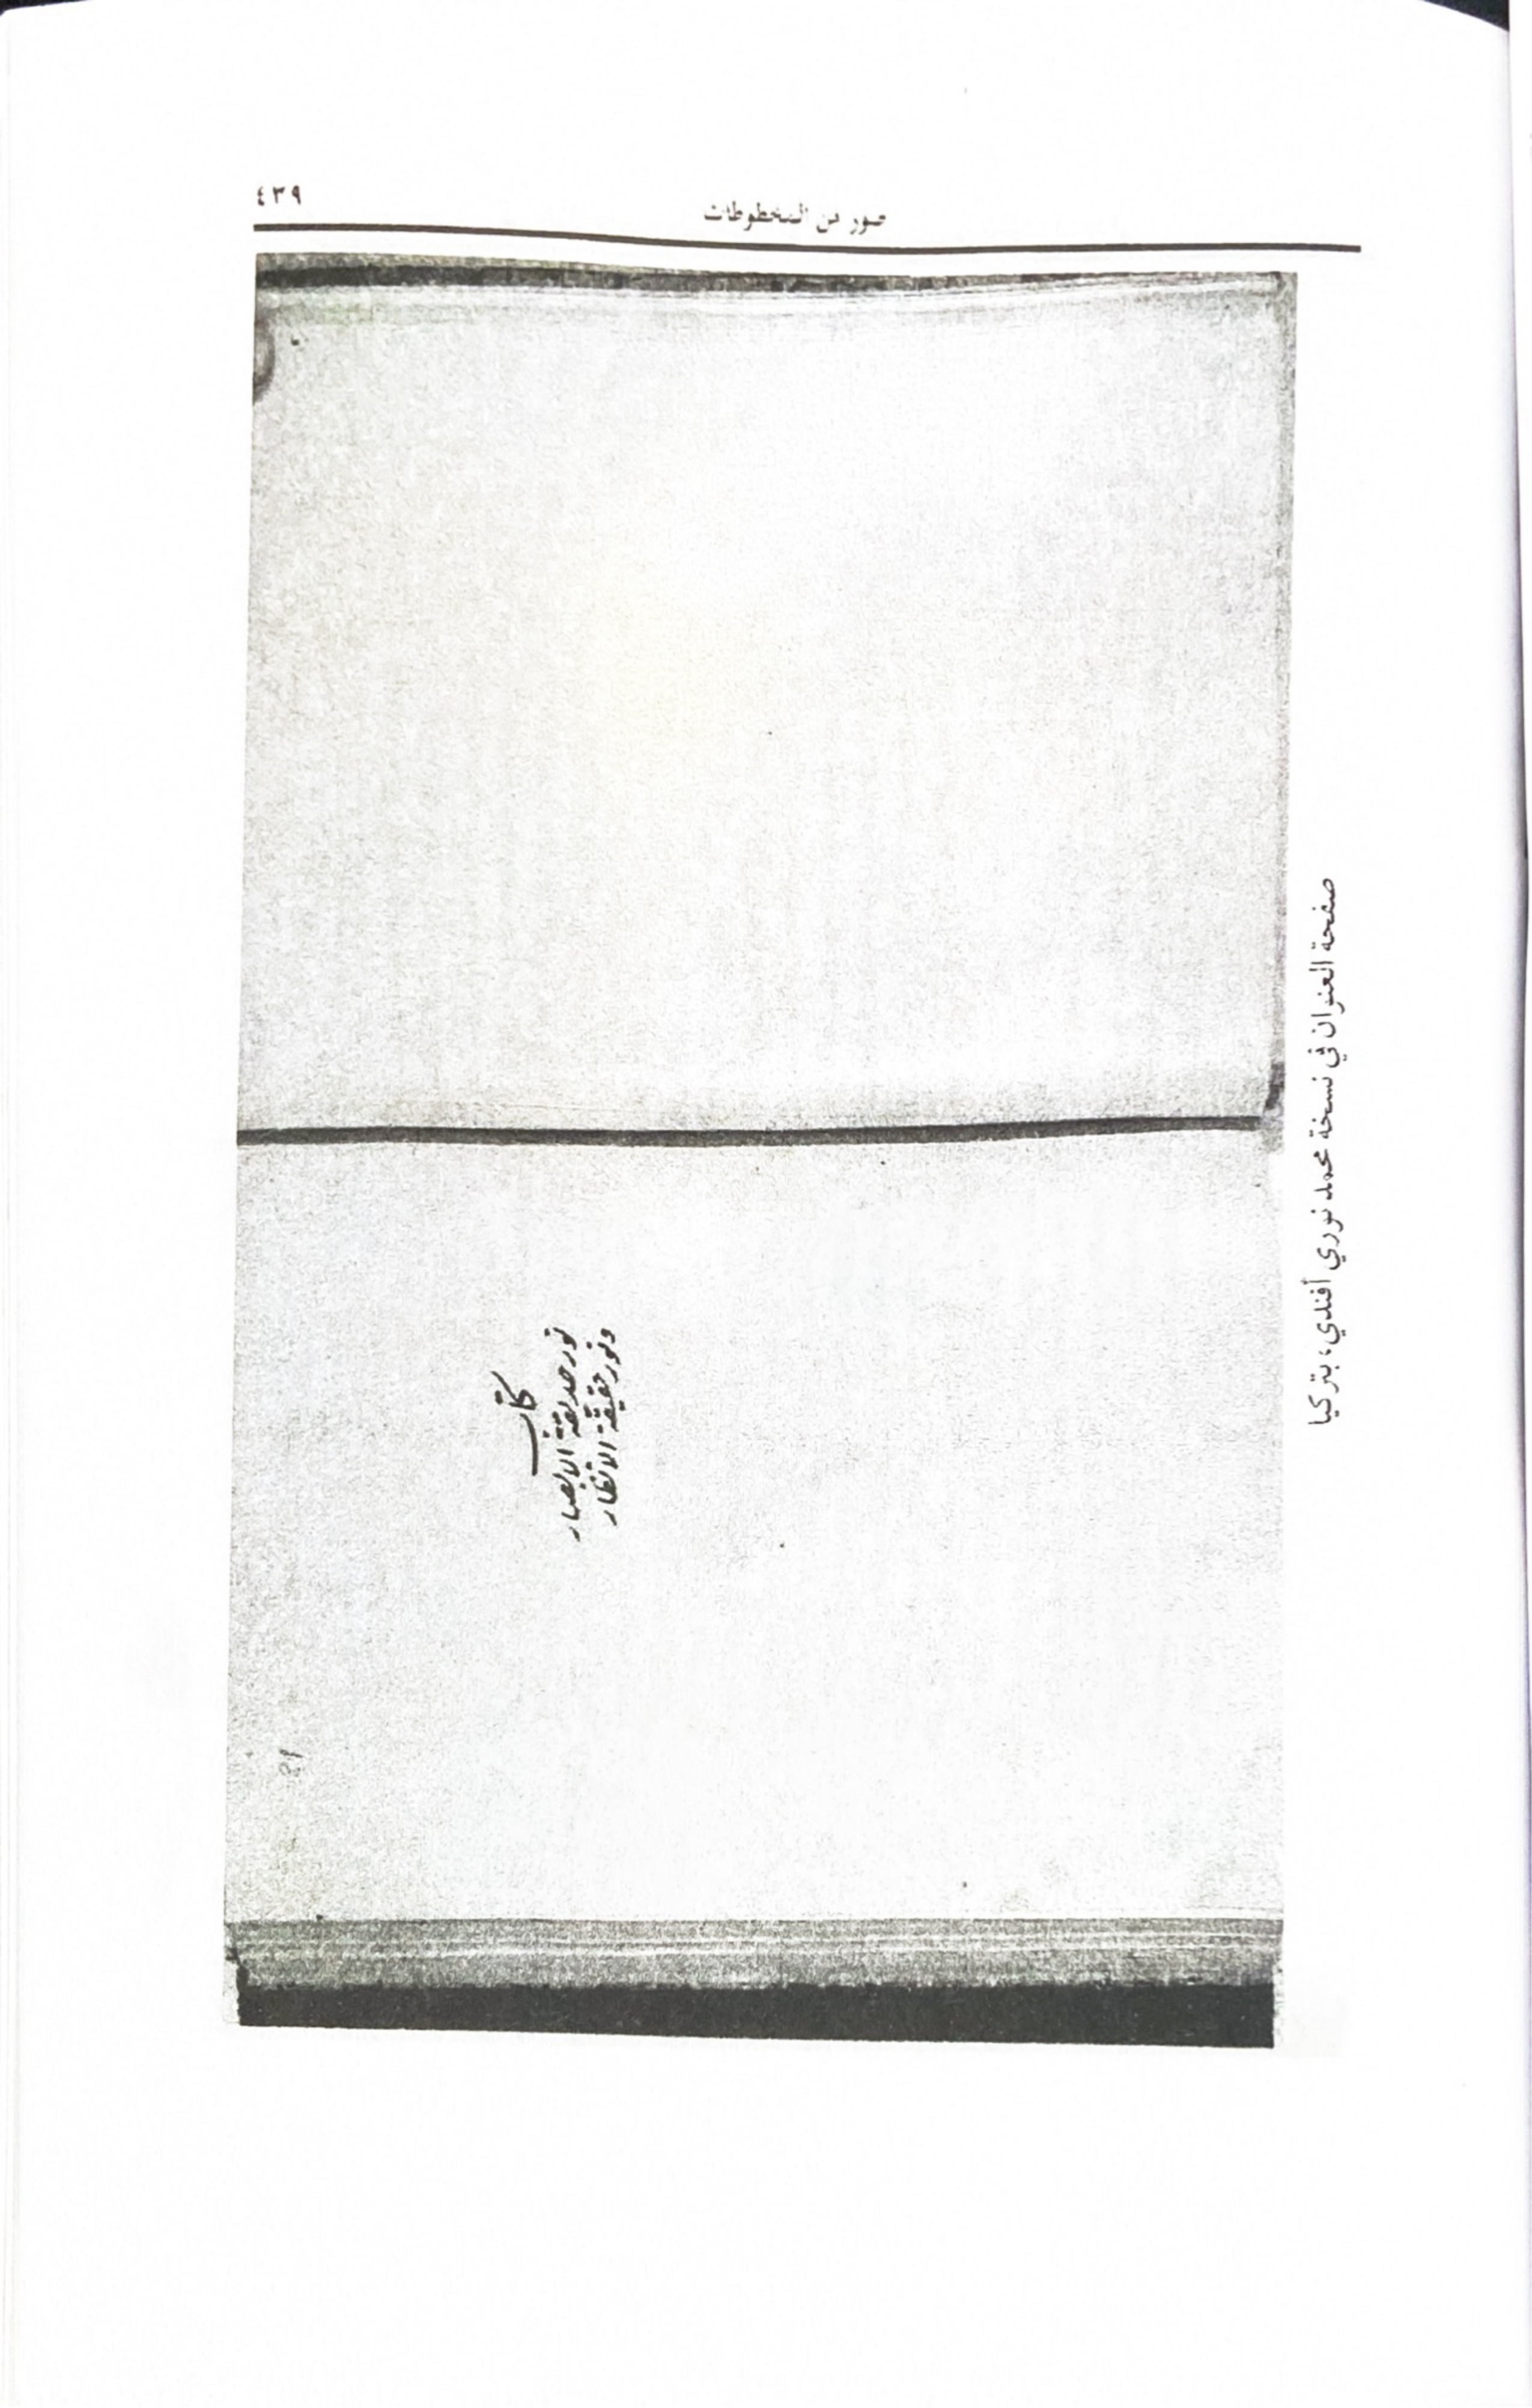 صور من المخطوطات
٤٣٩
كتاب
نور حديقة الابصار
ونور حقيقة الانظار
صفحة العنوان في نسخة محمد نوري أفندي، بتركيا